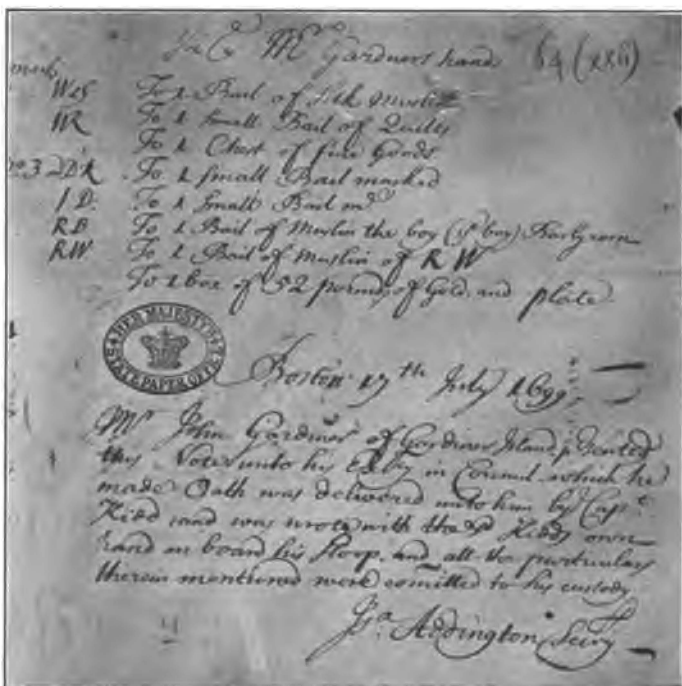 In Mr Gardners hand 64 (xxii)
mark
W&S To 1 Bail of Silk Muslin
MR To 1 Small Bail of Quilts
To 1 Chest of fine Goods
no. 3 2DR To 1 small Bail marked
1 D. To 1 Small Bail md
RB To 1 Bail of Muslin the boy (ye boy)
RW To 1 Bail of Muslin of RW
To 1 box of 52 pounds of Gold and plate
HER MAJESTY'S STATE PAPER OFFICE
Boston 17th July 1699
Mr John Gardiner of Gardiners Island presented
this Note unto his Excy in Council which he
made Oath was delivered unto him by Capt
Kidd and was wrote with the sd Kidds own
hand on board his Sloop and all the particulars
therein mentioned were comitted to his custody
Ja Addington Secry